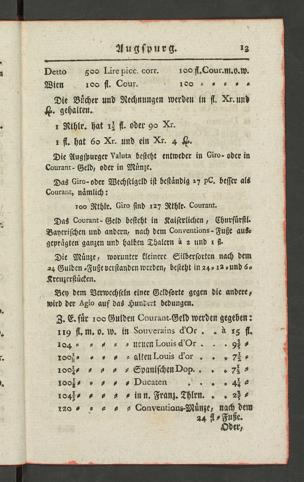 Augspurg. 13
Detto 500 Lire picc. corr. 100 fl. Cour. m. o. w.
Wien 100 fl. Cour. 100 " " " " "
Die Bücher und Rechnungen werden in fl. Xr. und
₰. gehalten.
1 Rthlr. hat 1½ fl. oder 90 Xr.
1 fl. hat 60 Xr. und ein Xr. 4 ₰.
Die Augspurger Valuta besteht entweder in Giro- oder in
Courant-Geld, oder in Münze.
Das Giro- oder Wechselgeld ist beständig 27 pC. besser als
Courant, nämlich:
100 Rthlr. Giro sind 127 Rthlr. Courant.
Das Courant-Geld besteht in Kaiserlichen, Churfürstl.
Bayerischen und andern, nach dem Conventions-Fuße aus-
geprägten ganzen und halben Thalern à 2 und 1 fl.
Die Münze, worunter kleinere Silbersorten nach dem
24 Gulden-Fuße verstanden werden, besteht in 24- 12- und 6-
Kreuzerstücken.
Bey dem Verwechseln einer Geldsorte gegen die andere,
wird der Agio auf das Hundert bedungen.
Z. E. für 100 Gulden Courant-Geld werden gegeben:
119 fl. m. o. w. in Souverains d'Or . . à 15 fl.
104½ " " " " " neuen Louis d'or . . . 9½ "
100½ " " " " " alten Louis d'or . . . 7½ "
100¼ " " " " " Spanischen Dop. . . . 7½ "
100¼ " " " " " Ducaten . . . . 4¼ "
104½ " " " " in n. Franz. Thlrn. . . 2¾ "
120 " " " " " Conventions-Münze, nach dem
24 fl.-Fuße.
Oder,